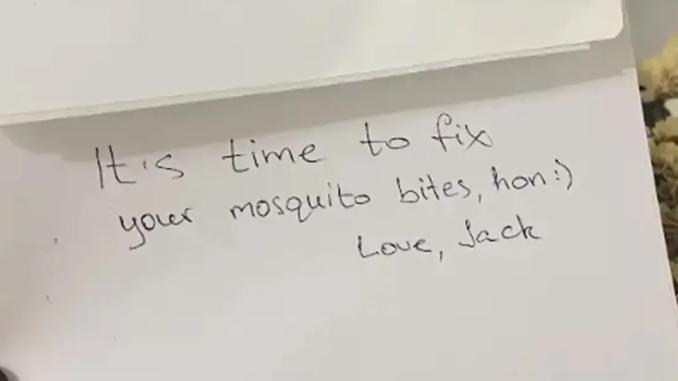 It's time to fix
your mosquito bites, hon:)
Love, Jack